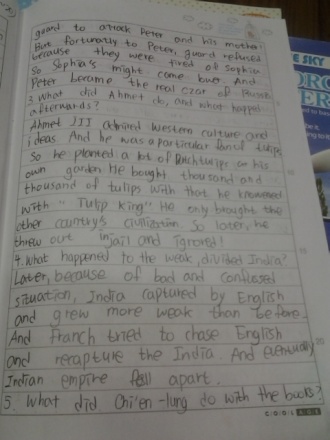 guard to attack Peter and his mother.
But fortunatly to Peter, guard refused
because they were tired of Sophia
So Sophia's might come over. And
Peter became the real czar of Russia
3. What did Ahmet do, and what happed
afterwards?
Ahmet III admired western culture and
ideas. And he was a particular fan of tulips
So he planted a lot of tulips on his
own garden. He bought thousand and
thousand of tulips with that he knowned
with "Tulip King" He only brought the
other country's civilization. So later, he
threw out in jail and ignored!
4. What happened to the weak, divided India?
Later, because of bad and confused
situation, India captured by English
and grew more weak than before.
And Franch tried to chase English
and recapture the India. And eventually
Indian empire fell apart.
5. What did Chi'en-lung do with the books?
CODE
SKY